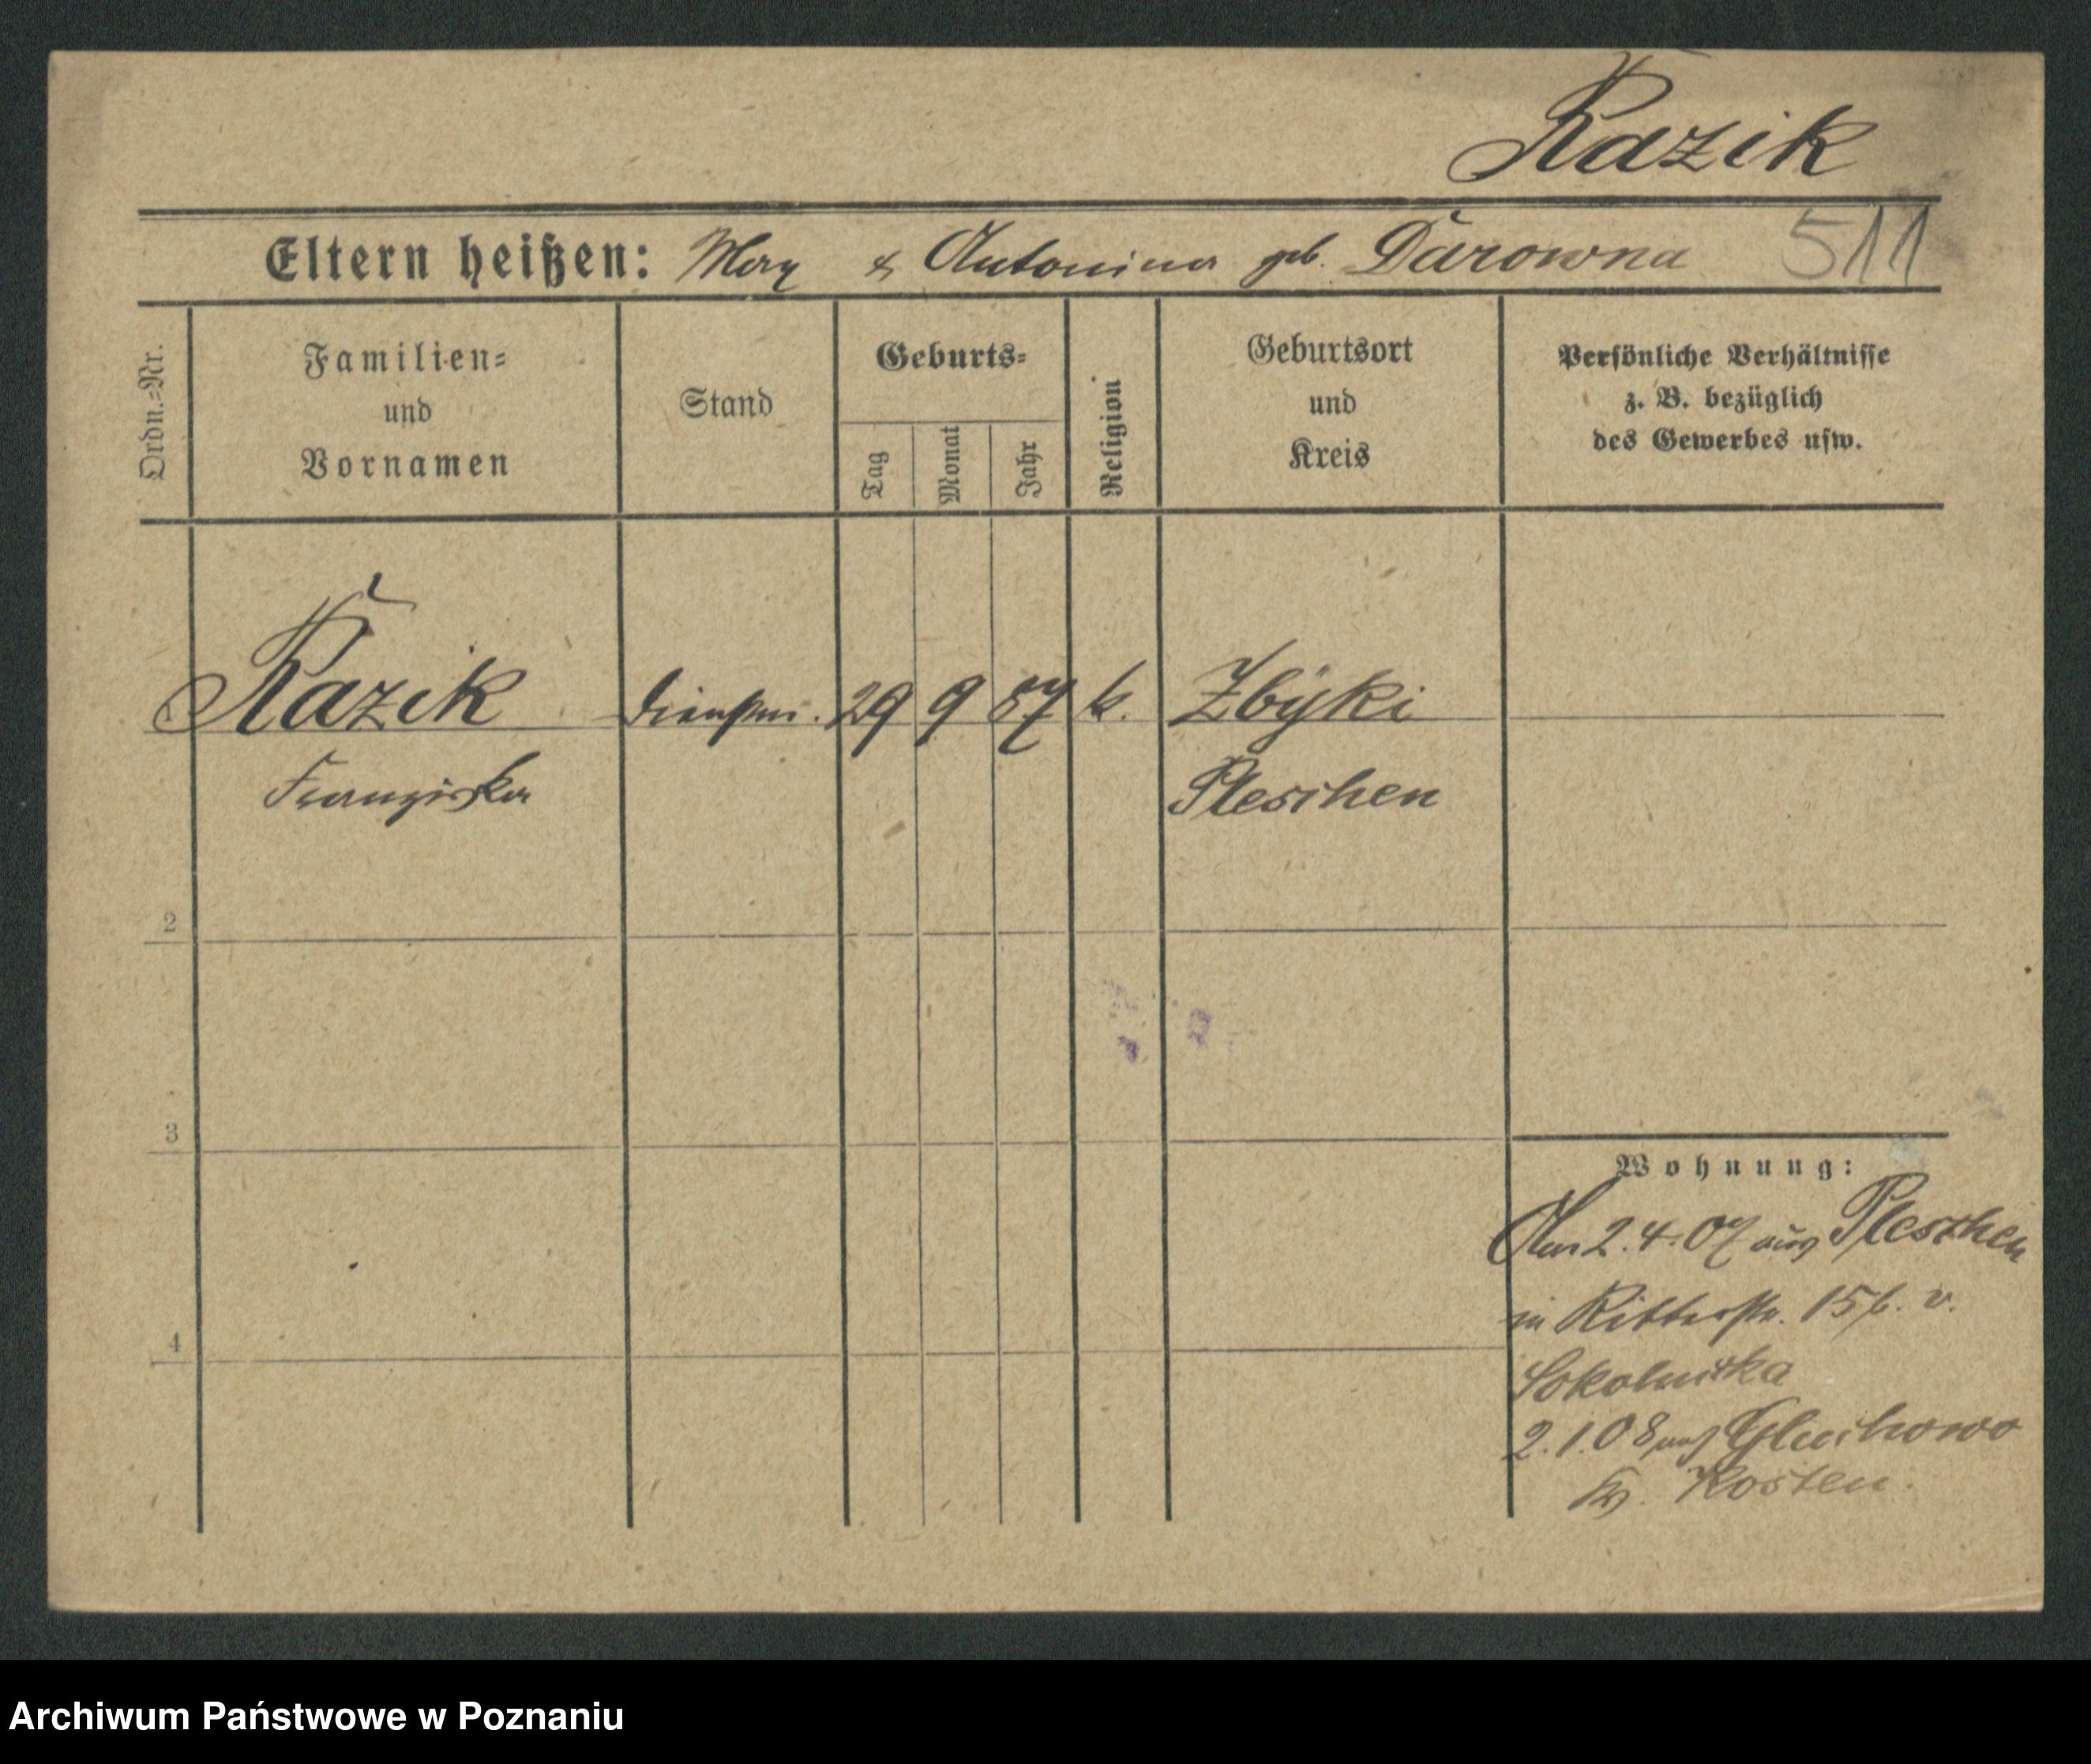 Kazik
Eltern heißen: & Antonina geb. Darowna 511
Ordn.=Nr.
Familien=
und
Vornamen
Stand
Geburts=
Tag
Monat
Jahr
Religion
Geburtsort
und
Kreis
Persönliche Verhältnisse
z. B. bezüglich
des Gewerbes usw.
1 Kazik Dienstm. 29 9 87 k. Zbyki
Franziska Pleschen
2
3
4
Wohnung:
Am 2.4.07 aus Pleschen
in Ritterstr. 15 b. v.
Sokolnicka
2.1.08 nach Gluchowo
Kr. Kosten.
Archiwum Państwowe w Poznaniu